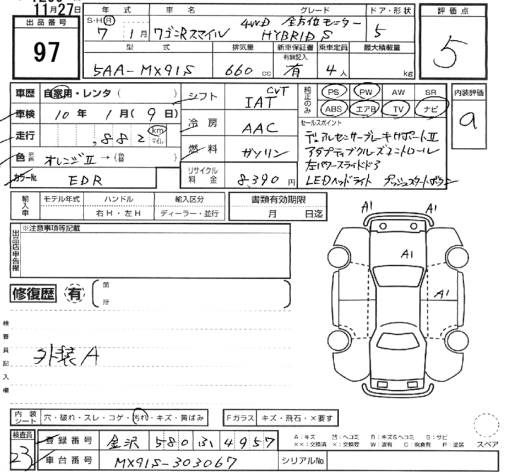 11月27日
出品番号
97
年式 車名 グレード ドア・形状
S・H・R 7 1月 ワゴンRスマイル 4WD 全方位モニター HYBRID S 5
型式 排気量 新車保証書 乗車定員 最大積載量
有 記入有
5AA-MX91S 660cc 有 4人 kg
評価点
5
車歴 自家用・レンタ( )
車検 10年 1月(9日)
走行 ,882 km マイル
色 オレンジⅡ →( )
カラーNo. EDR
シフト CVT IAT
冷房 AAC
燃料 ガソリン
リサイクル料金 8,390円
純正のみ PS PW AW SR
ABS エアB TV ナビ
内装評価
a
セールスポイント
デュアルセンサーブレーキサポートⅡ
アダプティブクルーズコントロール
左パワースライドドア
LEDヘッドライト プッシュスタートボタン
輸入車 モデル年式 ハンドル 輸入区分
右H・左H ディーラー・並行
書類有効期限
月 日迄
出品店申告欄
※注意事項等記載
修復歴 有 箇所
検査員記入欄
外装A
A1 A1
A1
A1
内装シート 穴・破れ・スレ・コゲ・汚れ・キズ・黄ばみ
Fガラス キズ・飛石・×要す
検査員 23
登録番号 金沢 580 い 4957
車台番号 MX91S-303067
シリアルNo.
A:キズ U:ヘコミ B:キズ&ヘコミ S:サビ
××:交換済 ×:交換要 W:波 C:腐食 P:塗装
スペア